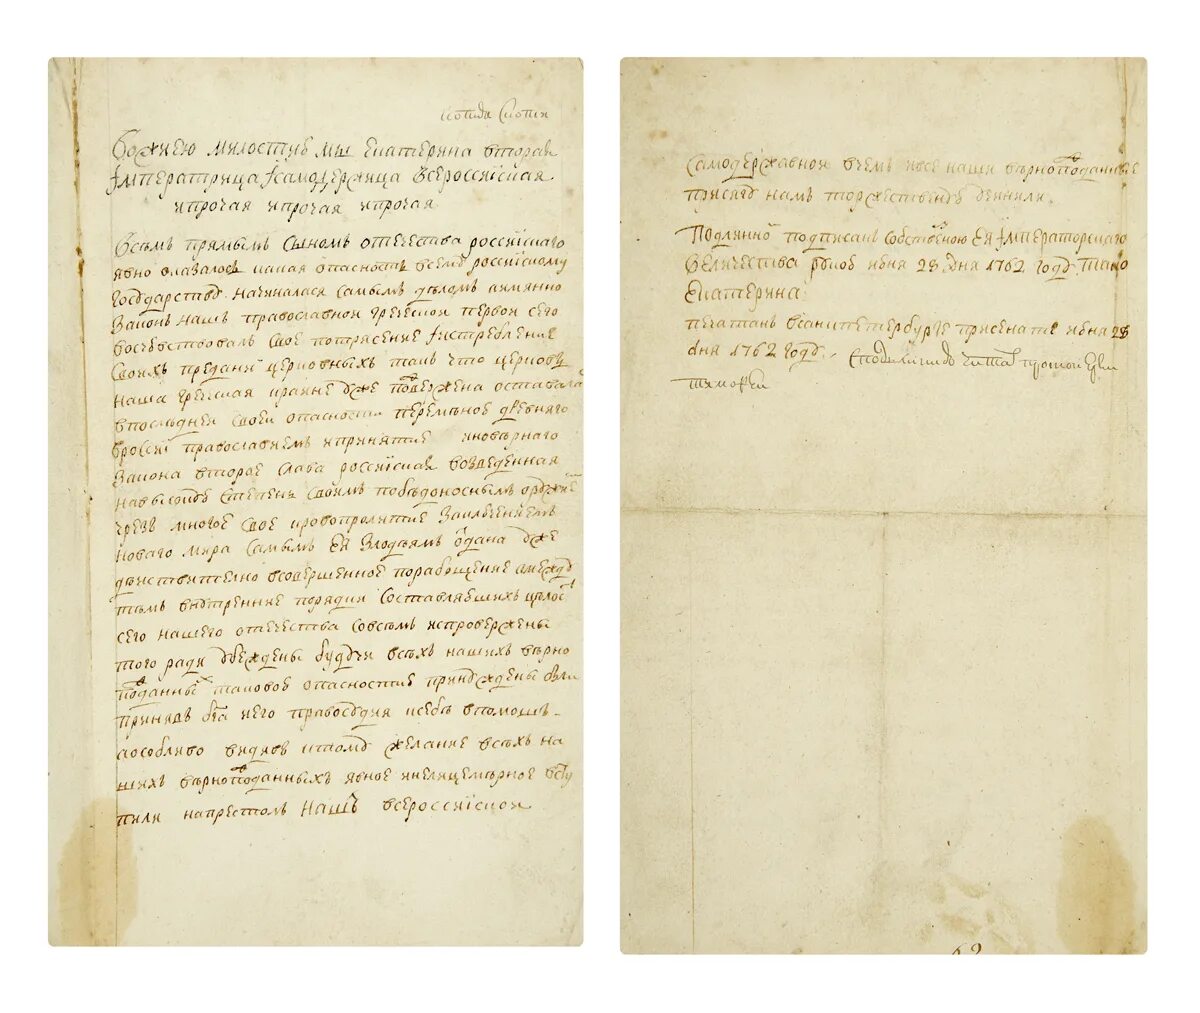 Копиа с копии
Божиею милостию мы Екатерина вторая
Императрица Iсамодержица Всероссиiская
ипрочая ипрочая ипрочая
Всѣмъ прямымъ сыномъ отечества россиiскаго
явно оказалось какая опасность всему россиiскому
государству начиналася самымъ дѣломъ аимянно
Законъ нашъ православной греческои первои сего
восчувствовалъ свое потрясение Iистребление
своихъ преданиi церковныхъ такъ что церковь
наша греческая краине уже подвержена оставалась
впослѣдней своеи опасности перемѣною древняго
вроссиi православiемъ ипринятие иновѣрнаго
Закона второе слава россиiская возведенная
навысоку степень своимъ победоноснымъ оружие
чрезъ многое свое кровопролитие Заключениемъ
новаго мира самымъ ея злодѣямъ отдана уже
дѣиствително всовершенное порабощение амежду
тѣмъ внутренние порядки составлявшихъ цѣлость
сего нашего отечества совсѣмъ испровержены
того ради убеждены будучи всѣхъ нашихъ вѣрно
подданныхъ таковою опасностию принуждены были
принявъ бга иего правосудия исебѣ впомощь
аособливо видявъ ктому желание всѣхъ на
шихъ вѣрноподданныхъ явное инелицемѣрное всту
пили напрестолъ нашъ всероссиiскои
самодержавнои вчемъ ивсе наши вѣрноподданные
присягу намъ торжественно учинили.
Подлянною подписанъ собственною Ея Iмператорскаго
Величества рукою июня 28 дня 1762 году тако
Екатерина
печатанъ всанктпетербурге присенате июня 28
дня 1762 году. Сподлинною читалъ протоколи
62